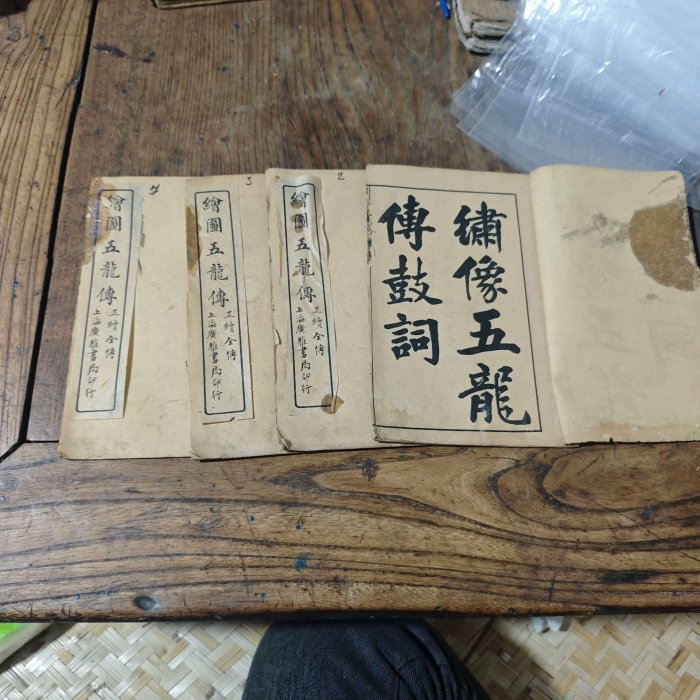 繡像五龍
傳鼓詞
2
繪圖五龍傳
正續全傳
上海廣雅書局印行
3
繪圖五龍傳
正續全傳
上海廣雅書局印行
4
繪圖五龍傳
正續全傳
上海廣雅書局印行